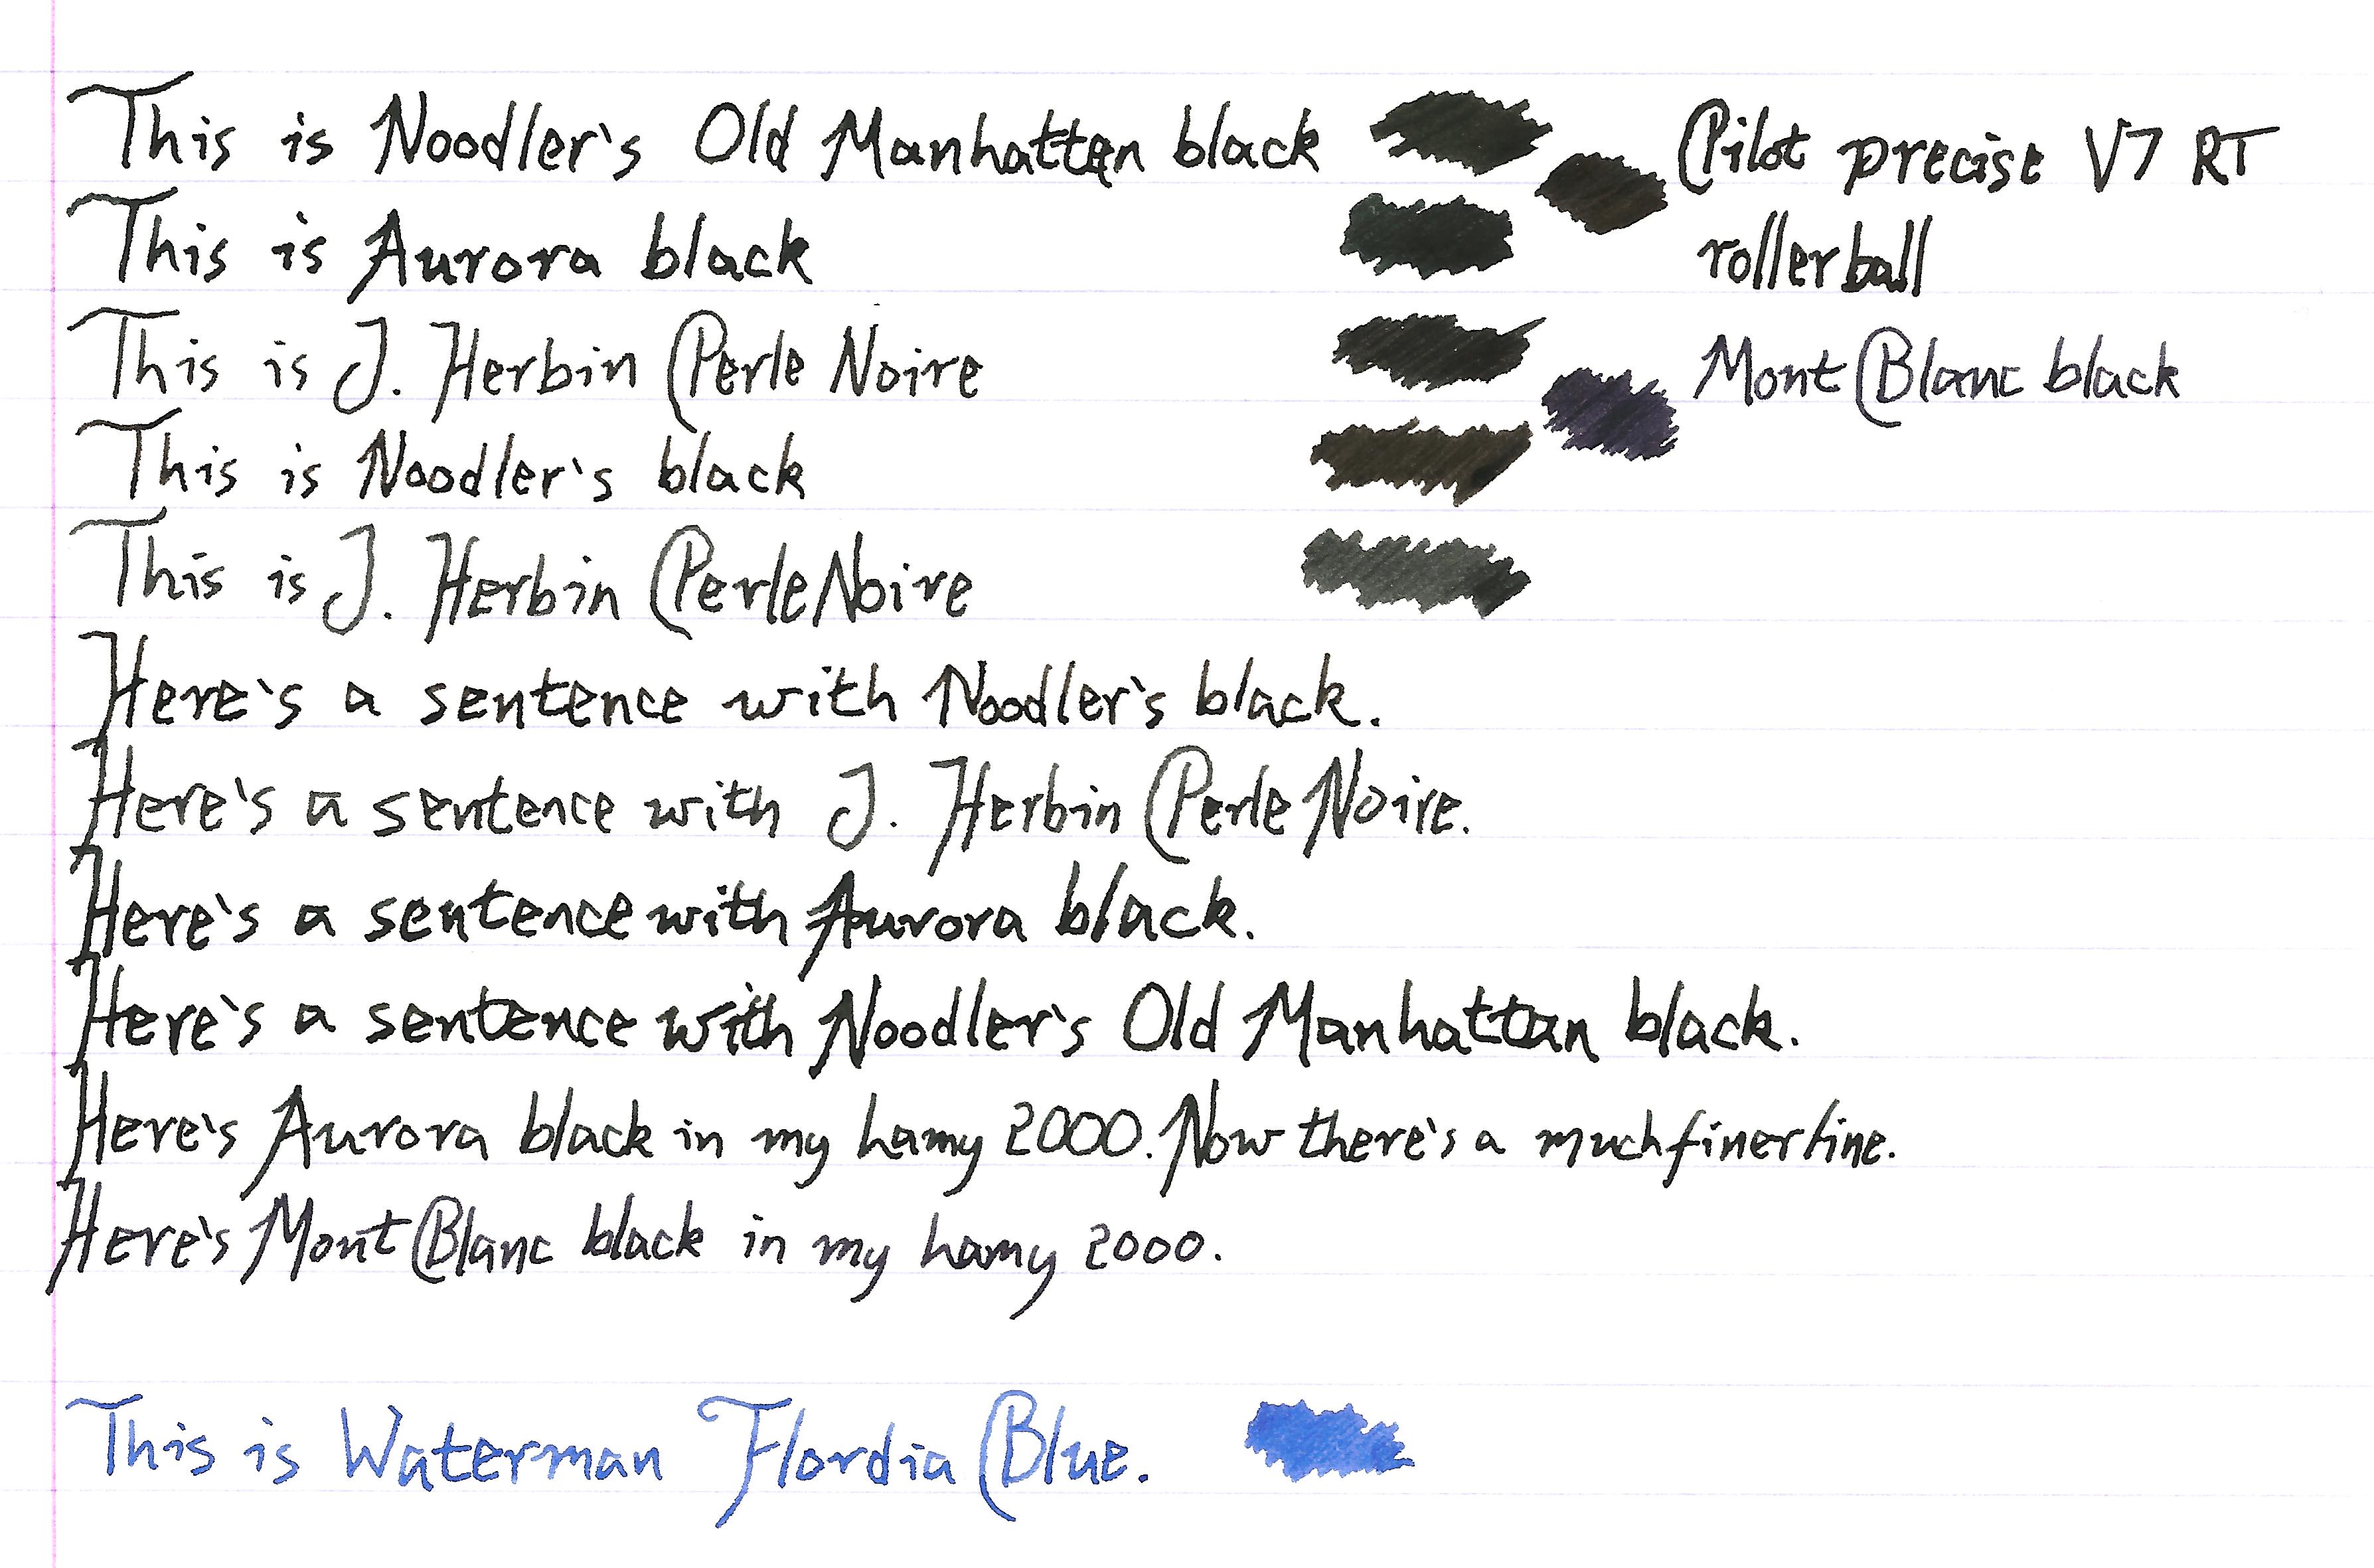 This is Noodler's Old Manhattan black
Pilot precise V7 RT
rollerball
This is Aurora black
This is J. Herbin Perle Noire
Mont Blanc black
This is Noodler's black
This is J. Herbin Perle Noire
Here's a sentence with Noodler's black.
Here's a sentence with J. Herbin Perle Noire.
Here's a sentence with Aurora black.
Here's a sentence with Noodler's Old Manhattan black.
Here's Aurora black in my Lamy 2000. Now there's a much finer line.
Here's Mont Blanc black in my Lamy 2000.
This is Waterman Flordia Blue.